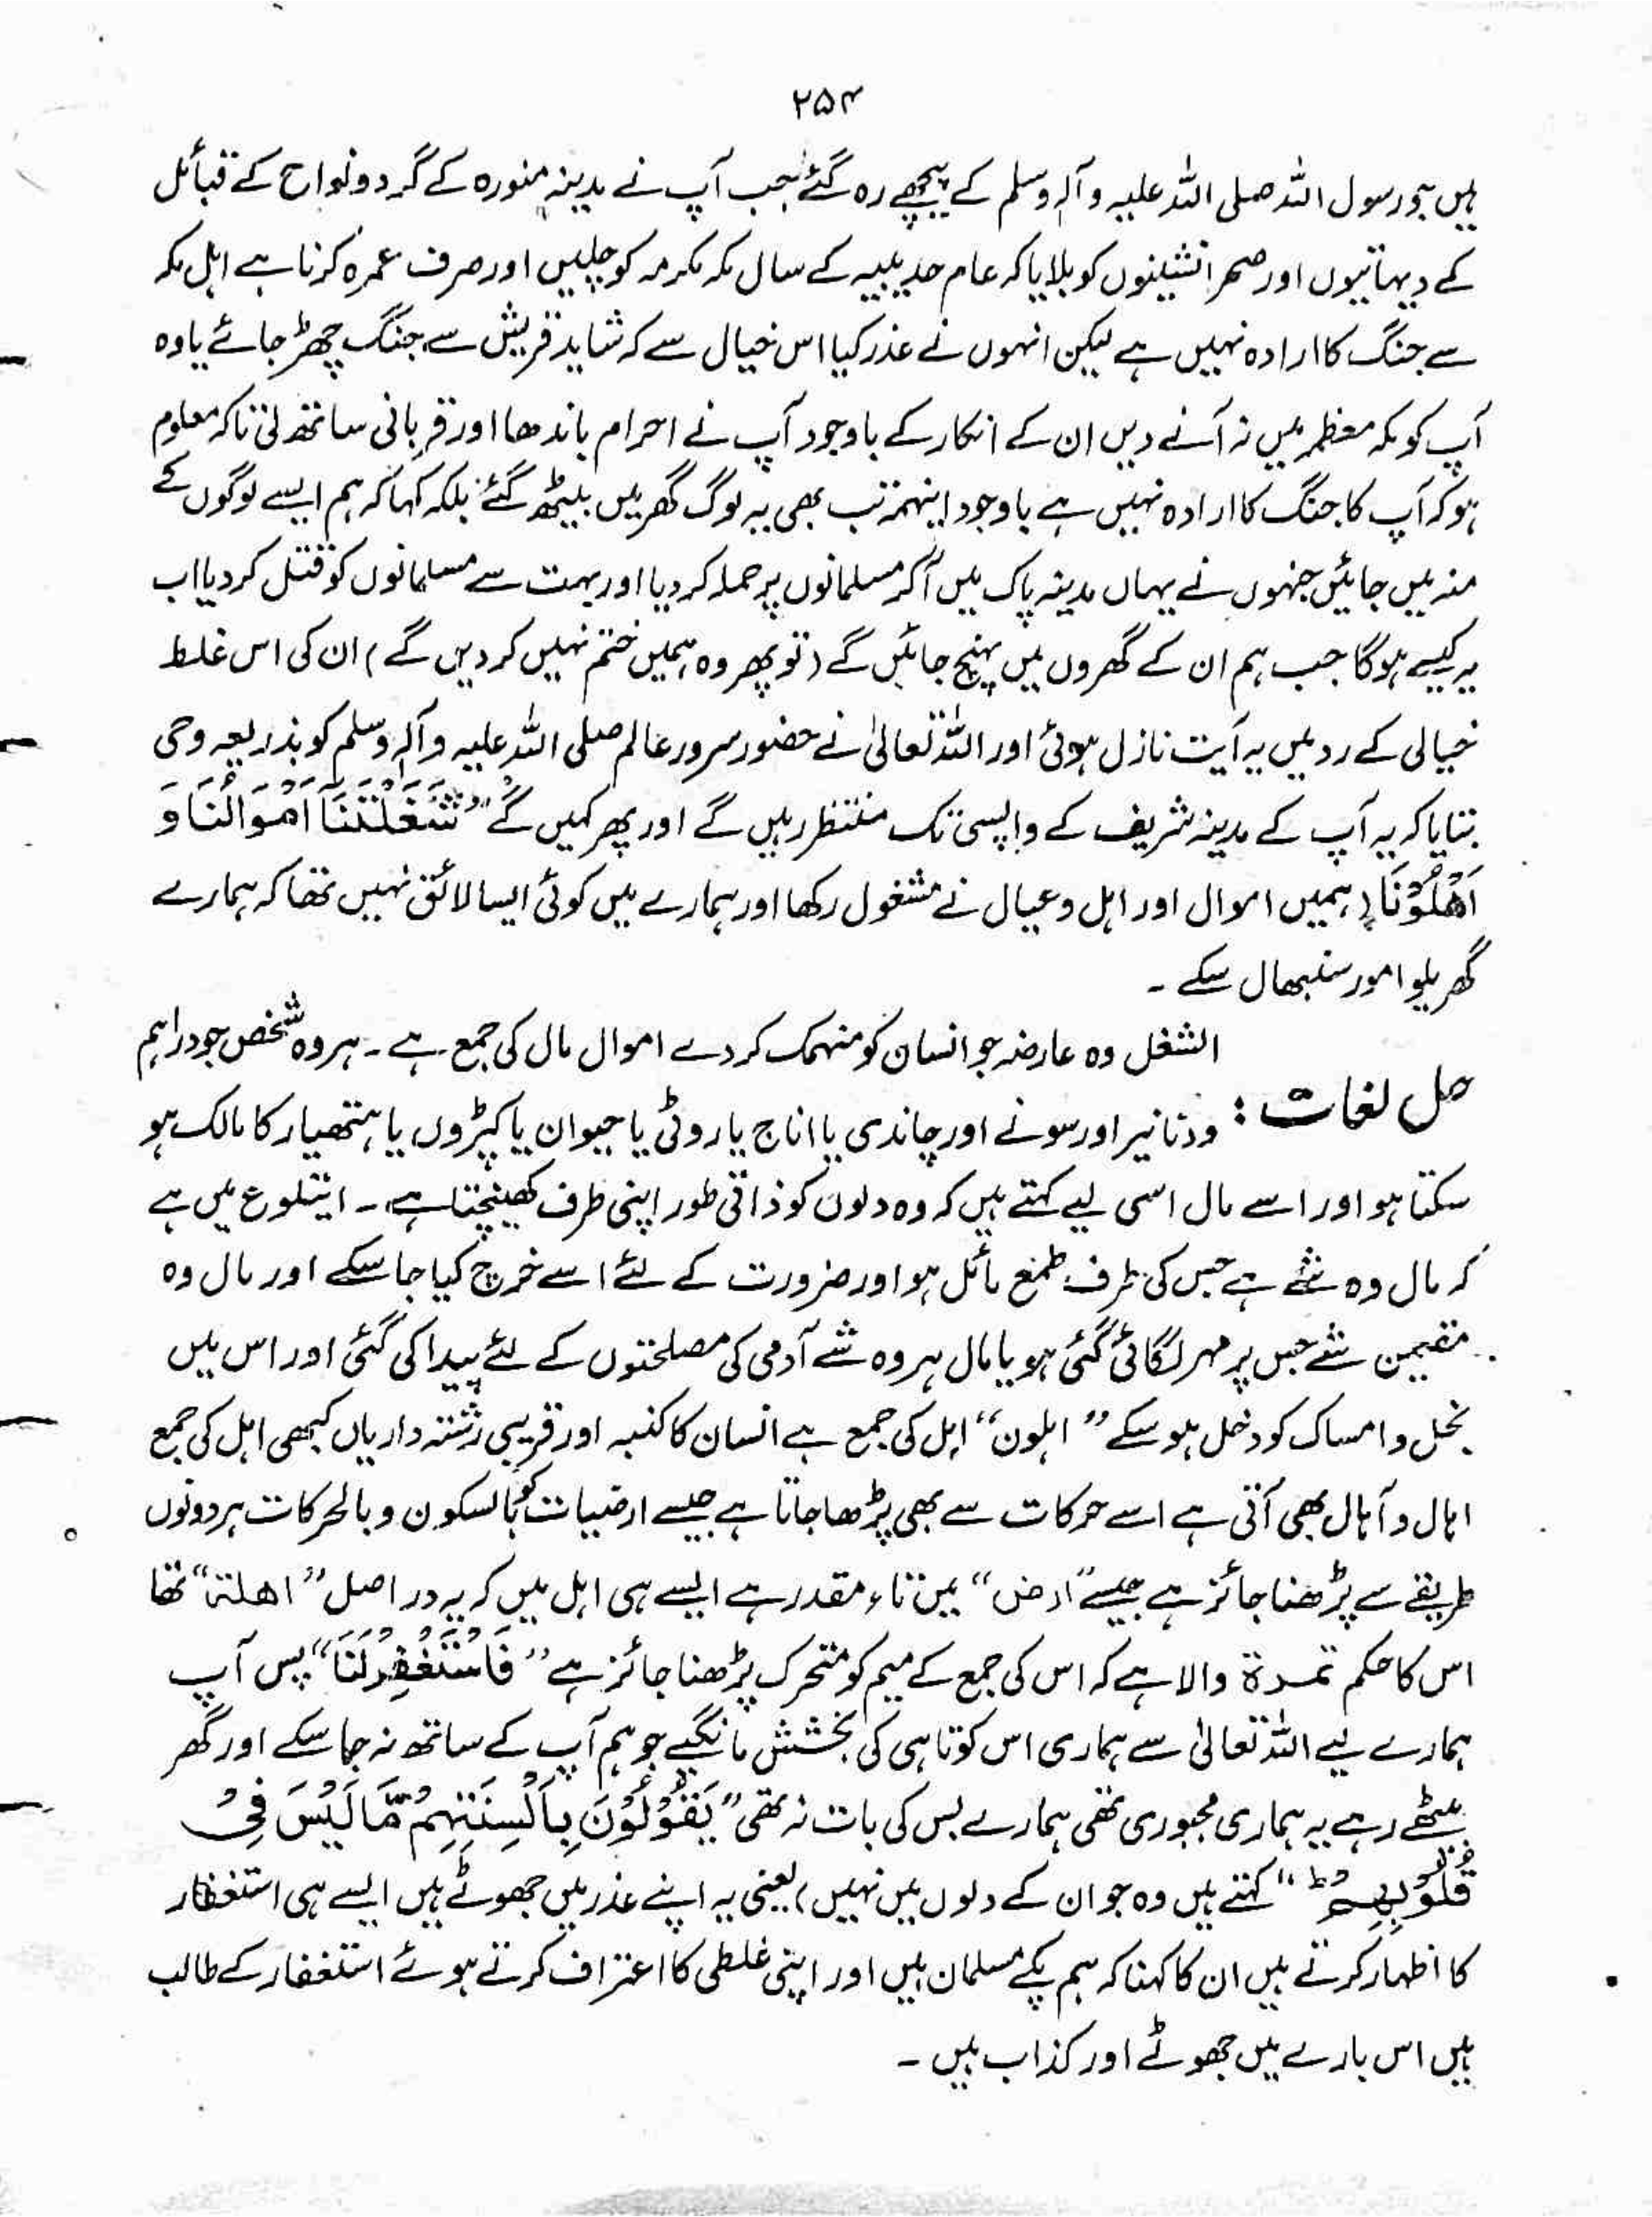 ۲۵۴
ہیں جو رسول اللہ صلی اللہ علیہ وآلہ وسلم کے پیچھے رہ گئے جب آپ نے مدینہ منورہ کے گرد و نواح کے قبائل
کے دیہاتیوں اور صحرا نشینوں کو بلایا کہ عام حدیبیہ کے سال مکہ مکرمہ کو چلیں اور صرف عمرہ کرنا ہے اہل مکہ
سے جنگ کا ارادہ نہیں ہے لیکن انہوں نے عذر کیا اس خیال سے کہ شاید قریش سے جنگ چھڑ جائے یا وہ
آپ کو مکہ معظمہ میں نہ آنے دیں ان کے انکار کے باوجود آپ نے احرام باندھا اور قربانی ساتھ لی تاکہ معلوم
ہو کہ آپ کا جنگ کا ارادہ نہیں ہے باوجود اینہمہ تب بھی یہ لوگ گھر میں بیٹھ گئے بلکہ کہا کہ ہم ایسے لوگوں کے
منہ میں جائیں جنہوں نے یہاں مدینہ پاک میں آکر مسلمانوں پر حملہ کر دیا اور بہت سے مسلمانوں کو قتل کر دیا اب
یہ کیسے ہوگا جب ہم ان کے گھروں میں پہنچ جائیں گے (تو پھر وہ ہمیں ختم نہیں کر دیں گے) ان کی اس غلط
خیالی کے رد میں یہ آیت نازل ہوئی اور اللہ تعالیٰ نے حضور سرور عالم صلی اللہ علیہ وآلہ وسلم کو بذریعہ وحی
بتایا کہ یہ آپ کے مدینہ شریف کے واپسی تک منتظر رہیں گے اور پھر کہیں گے ”شَغَلَتْنَآ اَمْوَالُنَا وَ
اَهْلُوْنَا (ہمیں اموال اور اہل و عیال نے مشغول رکھا اور ہمارے میں کوئی ایسا لائق نہیں تھا کہ ہمارے
گھریلو امور سنبھال سکے ۔
الشغل وہ عارضہ جو انسان کو منہمک کر دے اموال مال کی جمع ہے ۔ ہر وہ شخص جو دراہم
حل لغات : ودنانیر اور سونے اور چاندی یا اناج یا روٹی یا حیوان یا کپڑوں یا ہتھیار کا مالک ہو
سکتا ہو اور اسے مال اسی لیے کہتے ہیں کہ وہ دلوں کو ذاتی طور اپنی طرف کھینچتا ہے ۔ ایتلوع میں ہے
کہ مال وہ شئے ہے جس کی طرف طمع مائل ہو اور ضرورت کے لئے اسے خرچ کیا جا سکے اور مال وہ
متقیمن شئے جس پر مہر لگائی گئی ہو یا مال ہر وہ شے آدمی کی مصلحتوں کے لئے پیدا کی گئی اور اس میں
بخل و امساک کو دخل ہو سکے ”اہلون“ اہل کی جمع ہے انسان کا کنبہ اور قریبی رشتہ داریاں کبھی اہل کی جمع
اہال و آہال بھی آتی ہے اسے حرکات سے بھی پڑھا جاتا ہے جیسے ارضیات کو بالسکون و بالحرکات ہر دونوں
طریقے سے پڑھنا جائز ہے جیسے ”ارض“ میں تاء مقدر ہے ایسے ہی اہل میں کہ یہ دراصل ”اھلة“ تھا
اس کا حکم تمرة والا ہے کہ اس کی جمع کے میم کو متحرک پڑھنا جائز ہے ”فَاسْتَغْفِرْ لَنَا“ پس آپ
ہمارے لیے اللہ تعالیٰ سے ہماری اس کوتاہی کی بخشش مانگیے جو ہم آپ کے ساتھ نہ جا سکے اور گھر
بیٹھے رہے یہ ہماری مجبوری تھی ہمارے بس کی بات نہ تھی ”يَقُوْلُوْنَ بِاَلْسِنَتِهِمْ مَّا لَيْسَ فِيْ
قُلُوْبِهِمْ ؕ“ کہتے ہیں وہ جو ان کے دلوں میں نہیں) یعنی یہ اپنے عذر میں جھوٹے ہیں ایسے ہی استغفار
کا اظہار کرتے ہیں ان کا کہنا کہ ہم پکے مسلمان ہیں اور اپنی غلطی کا اعتراف کرتے ہوئے استغفار کے طالب
ہیں اس بارے میں جھوٹے اور کذاب ہیں ۔